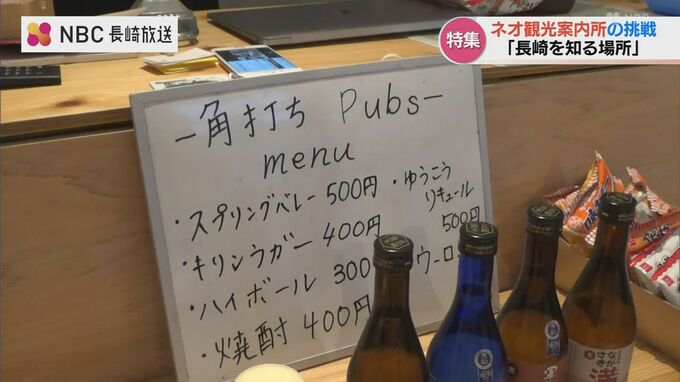 NBC 長崎放送
特集
ネオ観光案内所の挑戦
「長崎を知る場所」
ー角打ち Pubsー
menu
・スプリングバレー 500円
・キリンラガー 400円
・ハイボール 300
・焼酎 400円
・ゆうこう
リキュール
500円
ウーロ